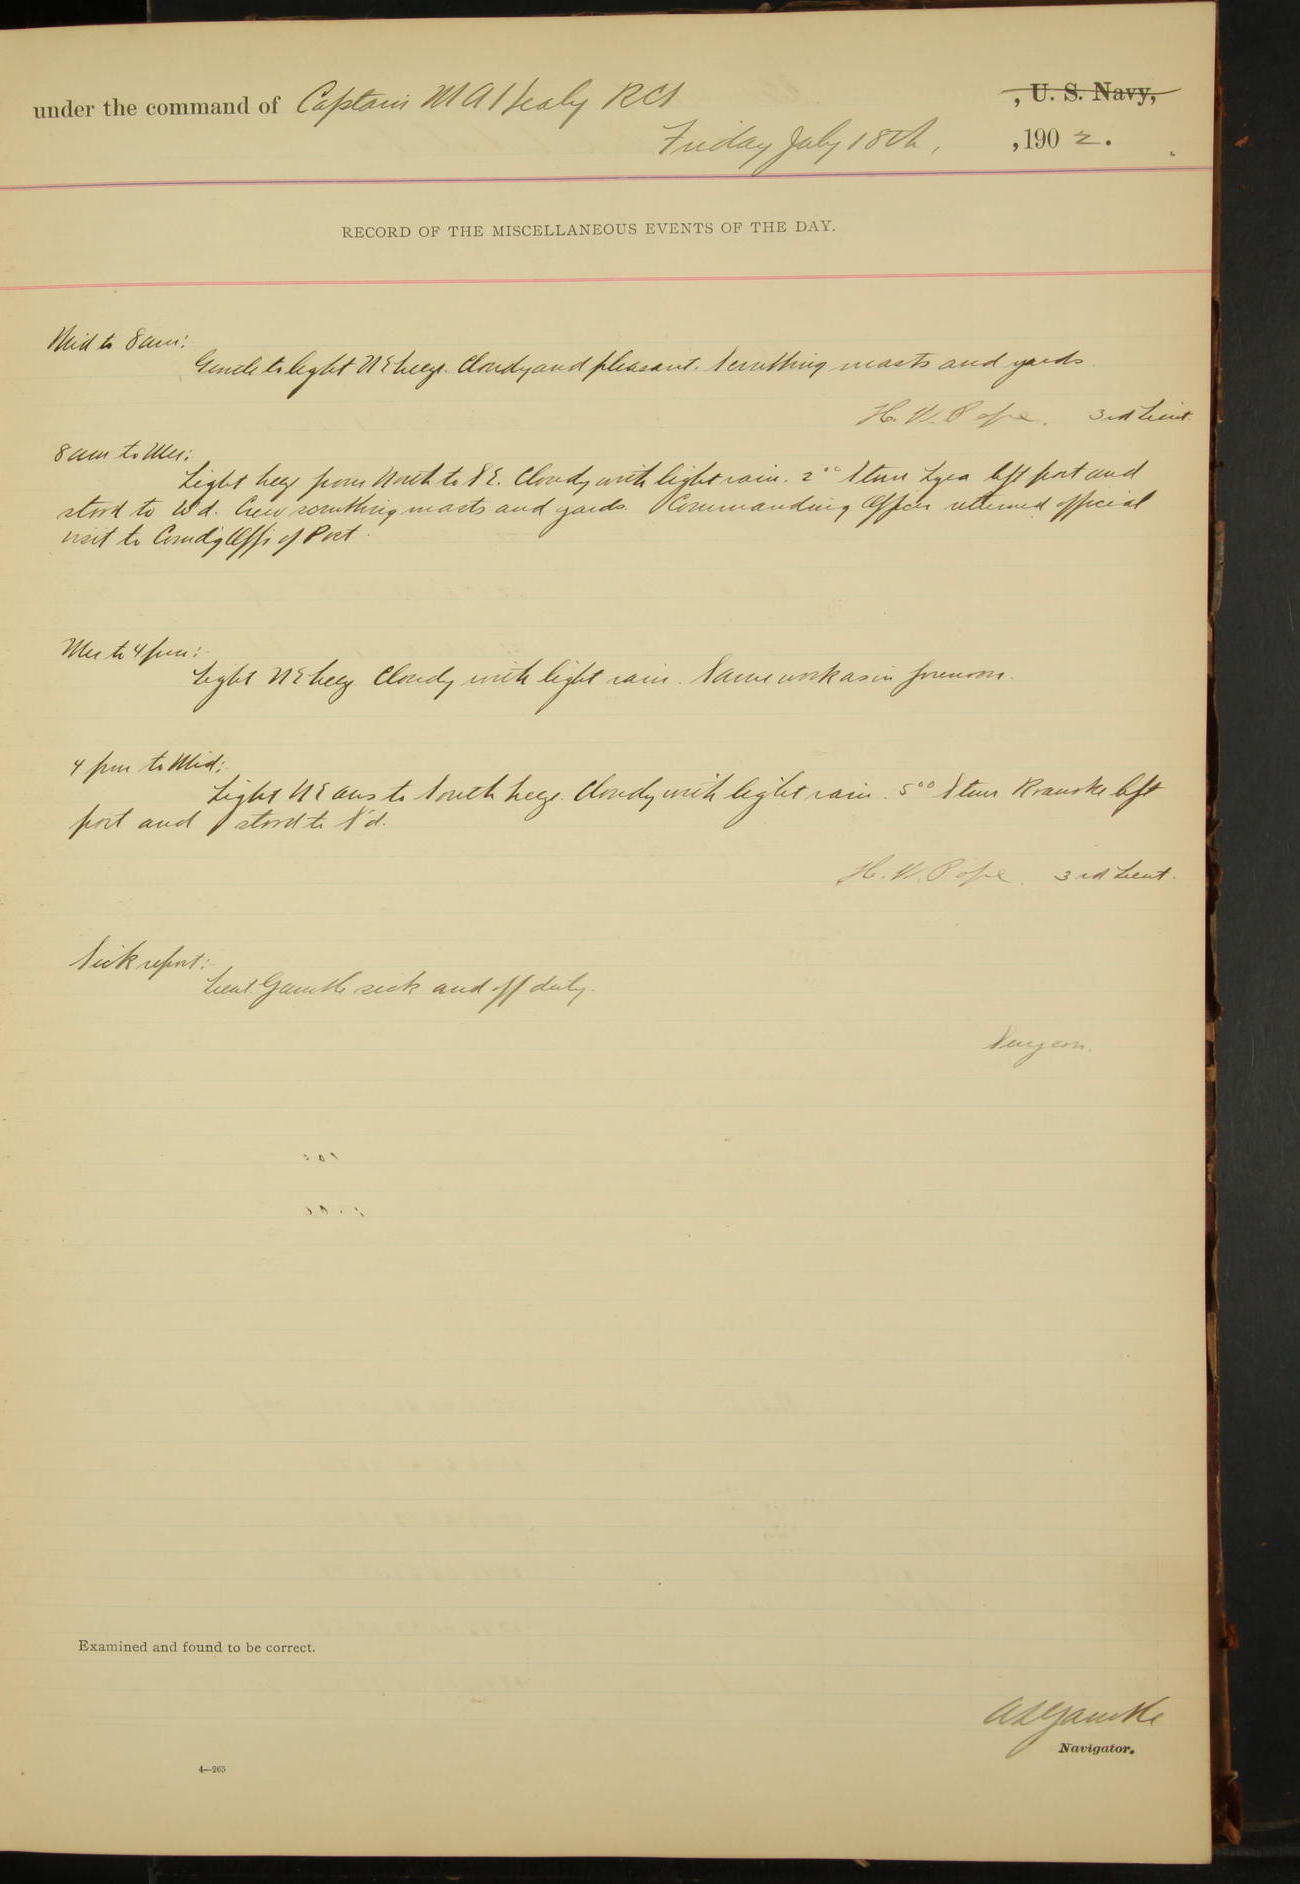 under the command of Captain M A Healy RCS , U. S. Navy,
Friday July 18th, , 190 2.
RECORD OF THE MISCELLANEOUS EVENTS OF THE DAY.
Mid to 8 am:
Gentle to light NE breeze. Cloudy and pleasant. Scrubbing masts and yards.
H. W. Pope. 3rd Lieut.
8 am to Mer:
Light breeze from North to NE. Cloudy with light rain. 2 00 Stmr Lyra left port and
stood to Wd. Crew scrubbing masts and yards. Commanding Officer returned official
visit to Comd'g Offr of Post.
Mer to 4 pm:
Light NE breeze. Cloudy with light rain. Same work as in forenoon.
4 pm to Mid:
Light NE airs to South breeze. Cloudy with light rain. 5 00 Stmr Roanoke left
port and stood to S'd.
H. W. Pope. 3rd Lieut.
Sick report:
Lieut. Gamble sick and off duty.
Surgeon.
Examined and found to be correct.
A L Gamble
Navigator.
4—265